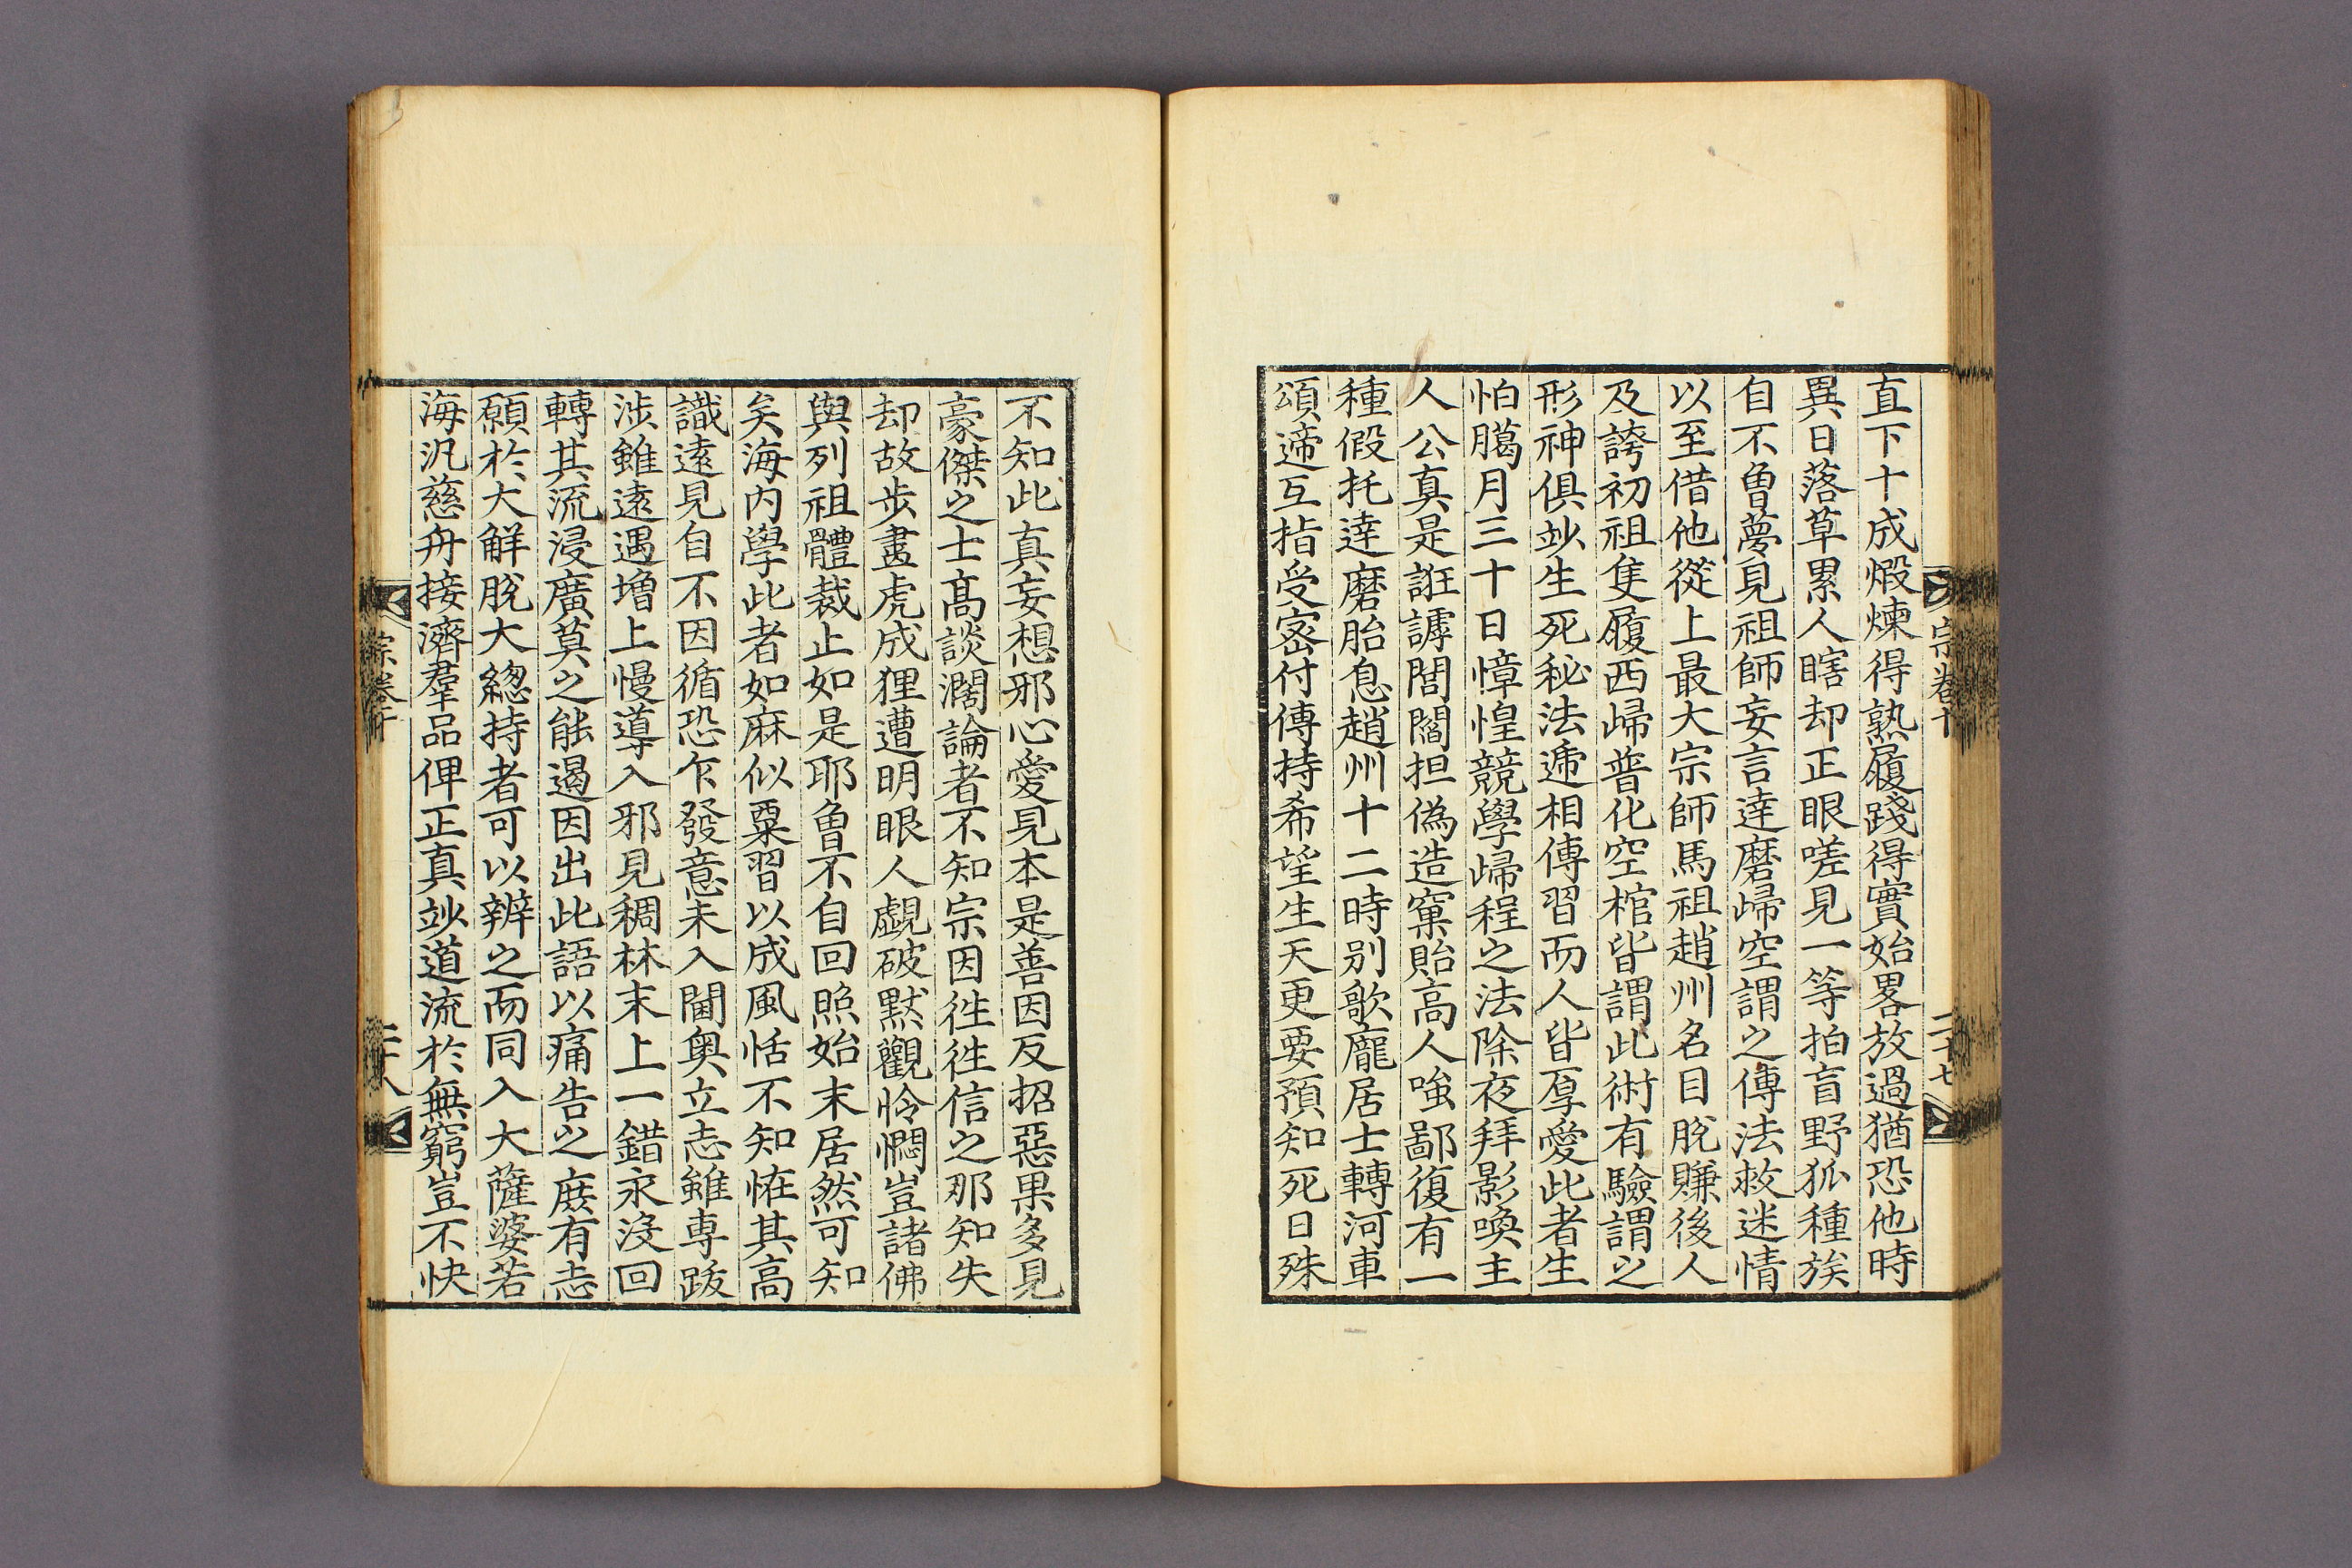 直下十成煅煉得熟履踐得實始畧放過猶恐他時
異日落草累人瞎却正眼嗟見一等拍盲野狐種族
自不曾夢見祖師妄言達磨歸空謂之傳法救迷情
以至借他從上最大宗師馬祖趙州名目脫賺後人
及誇初祖隻履西歸普化空棺皆謂此術有驗謂之
形神俱玅生死秘法遞相傳習而人皆厚愛此者生
怕臈月三十日慞惶競學歸程之法除夜拜影喚主
人公真是誑謼閭閻担偽造窠貽高人嗤鄙復有一
種假托達磨胎息趙州十二時別歌龐居士轉河車
頌遞互指受密付傳持希望生天更要預知死日殊
宗卷十
二十七
不知此真妄想邪心愛見本是善因反招惡果多見
豪傑之士高談濶論者不知宗因徃徃信之那知失
却故步畫虎成狸遭明眼人覷破默觀怜憫豈諸佛
與列祖體裁止如是耶曾不自回照始末居然可知
矣海内學此者如麻似粟習以成風恬不知恠其高
識遠見自不因循恐乍發意未入閫奥立志雖專跋
涉雖遠遇增上慢導入邪見稠林末上一錯永沒回
轉其流浸廣莫之能遏因出此語以痛告之庶有志
願於大解脫大緫持者可以辨之而同入大薩婆若
海汎慈舟接濟羣品俾正真玅道流於無窮豈不快
宗卷十
二十八